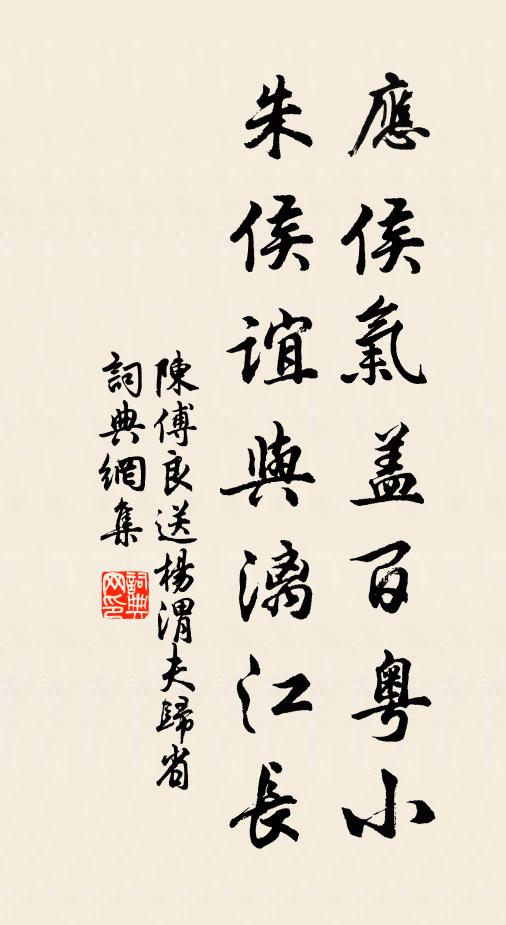 應侯氣盖百粤小
朱侯誼與漓江長
陳傅良送楊渭夫歸省
詞典網集
詞典网印